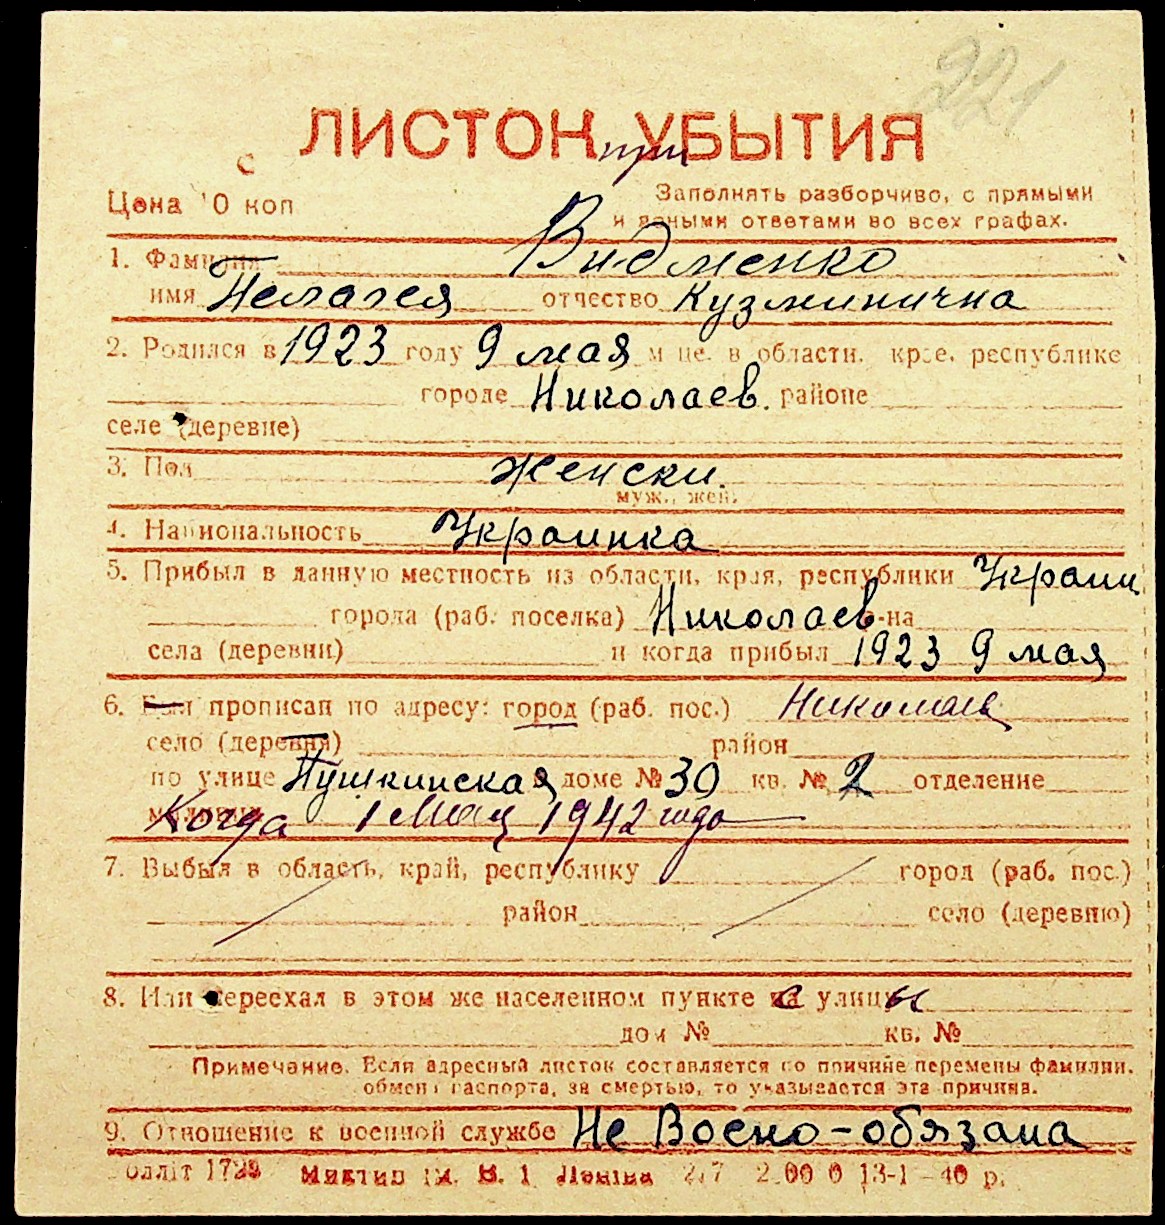 221
ЛИСТОК УБЫТИЯ
при
с
Цена 10 коп
Заполнять разборчиво, с прямыми
и ясными ответами во всех графах.
1. Фамилия Видменко
имя Пелагея отчество Кузминична
2. Родился в 1923 году 9 мая м це. в области, крае, республике
городе Николаев. районе
селе (деревне)
3. Пол женски.
муж., жен.
4. Национальность Украинка
5. Прибыл в данную местность из области, края, республики Украин
города (раб. поселка) Николаев р-на
села (деревни) и когда прибыл 1923 9 мая
6. Был прописан по адресу: город (раб. пос.) Николаев
село (деревня) район
по улице Пушкинская доме № 30 кв. № 2 отделение
милиции Когда 1 Мая 1942 года
7. Выбыл в область, край, республику город (раб. пос.)
район село (деревню)
8. Или переехал в этом же населенном пункте с улицы
дом № кв. №
Примечание. Если адресный листок составляется по причине перемены фамилии,
обмена паспорта, за смертью, то указывается эта причина.
9. Отношение к военной службе Не Воено-обязана
2.00 0 13-1-40 р.